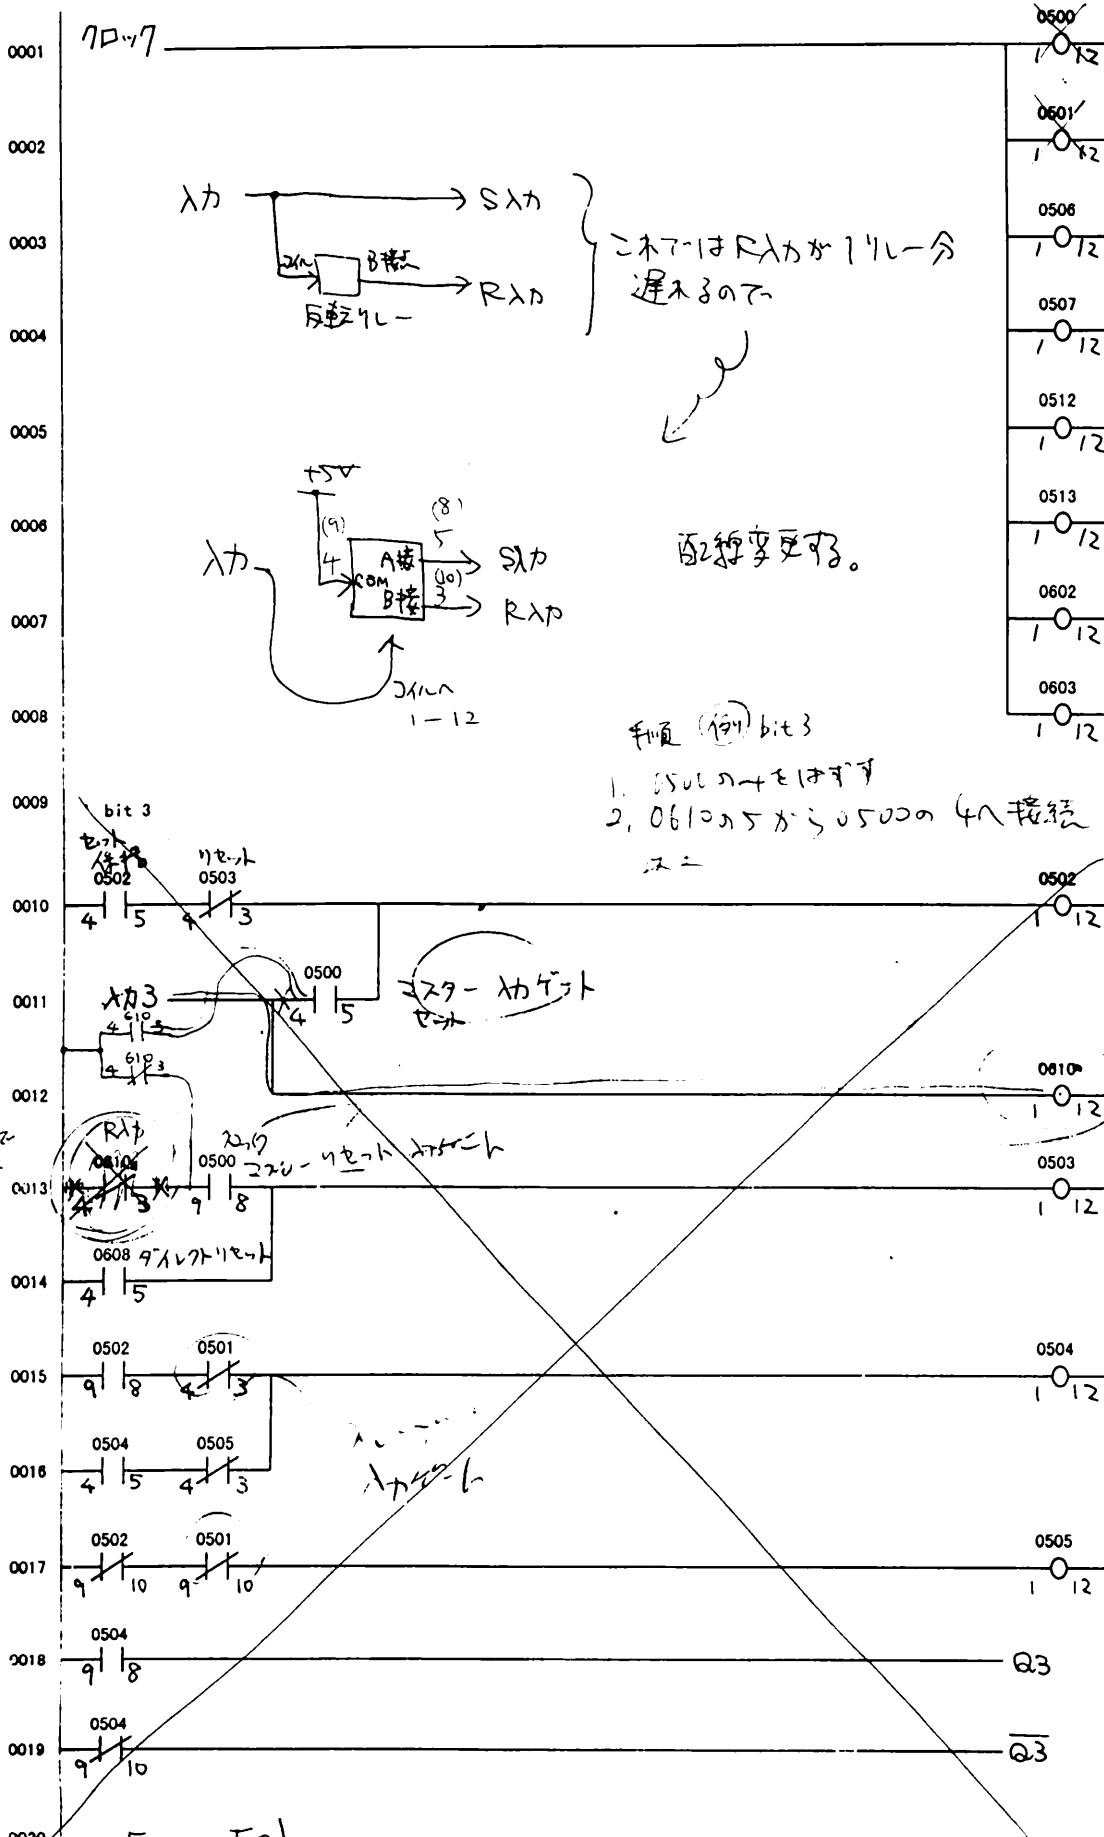 0001
クロック
0500
1 12
0002
0501
1 12
入力
S入力
0003
コイル
B接点
R入力
反転リレー
これではR入力が1リレー分
遅れるので
0506
1 12
0004
0507
1 12
0005
0512
1 12
+5V
0006
入力
(9)
4
COM
A接
B接
(8)
5
(10)
3
S入力
R入力
配線変更する。
0513
1 12
0007
0602
1 12
コイルへ
1-12
0008
0603
1 12
手順 (例) bit 3
1. 0500の4をはずす
2. 0610の5から0500の4へ接続
0009
bit 3
セット
保持
リセット
0010
0502
4 5
0503
4 3
0502
1 12
0011
入力3
0500
4 5
マスター 入力ゲート
セット
4 610 5
4 610 3
0012
0610
1 12
R入力
0013
0610
4 3
0500
9 8
マスター リセット
0503
1 12
0014
0608
4 5
ダイレクトリセット
0015
0502
9 8
0501
4 3
0504
1 12
0016
0504
4 5
0505
4 3
入力ゲート
0017
0502
9 10
0501
9 10
0505
1 12
0018
0504
9 8
Q3
0019
0504
9 10
Q3̅